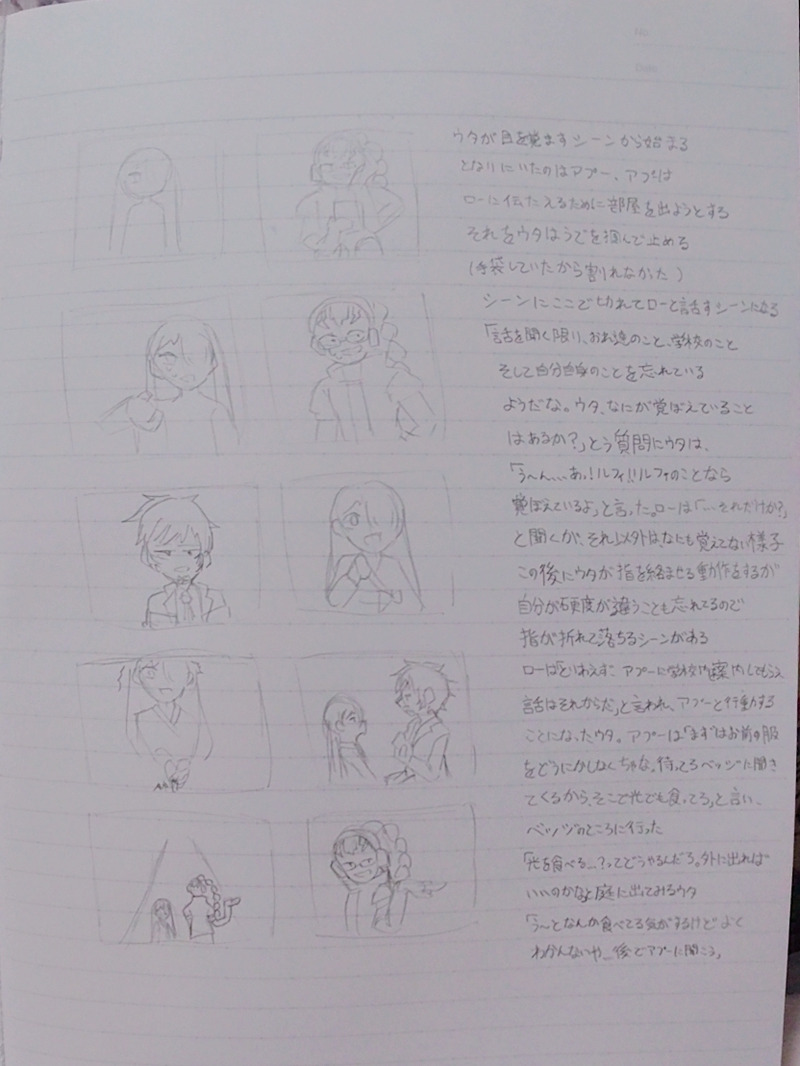 No.
Date
ウタが目を覚ますシーンから始まる
となりにいたのはアプー、アプーは
ローに伝たえるために部屋を出ようとする
それをウタはうでを掴んで止める
(手袋していたから割れなかた)
シーンにここで切れてローと話すシーンになる
「話を聞く限り、おれ達のこと、学校のこと
そして自分自身のことを忘れている
ようだな。ウタ、なにか覚ぼえていること
はあるか?」とう質問にウタは、
「う〜ん、、、あっ!ルフィ!!ルフィのことなら
覚ぼえているよ」と言った。ローは「…それだけか?」
と聞くが、それ以外は、なにも覚えてない様子
この後にウタが指を絡ませる動作をするが
自分が硬度が違うことも忘れてるので
指が折れて落ちるシーンがある
ローは「とりあえず、アプーに学校内案内してもらえ
話はそれからだ」と言われ、アプーと行動する
ことになったウタ。アプーは「まずはお前の服
をどうにかしなくちゃな。待ってろベッジに聞き
てくるから、そこで光でも食ってろ」と言い、
ベッジのところに行った
「光を食べる…?ってどうやるんだろ。外に出れば
いいのかな」と庭に出てみるウタ
「う〜となんか食べてる気がするけど よく
わかんないや…後でアプーに聞こう」